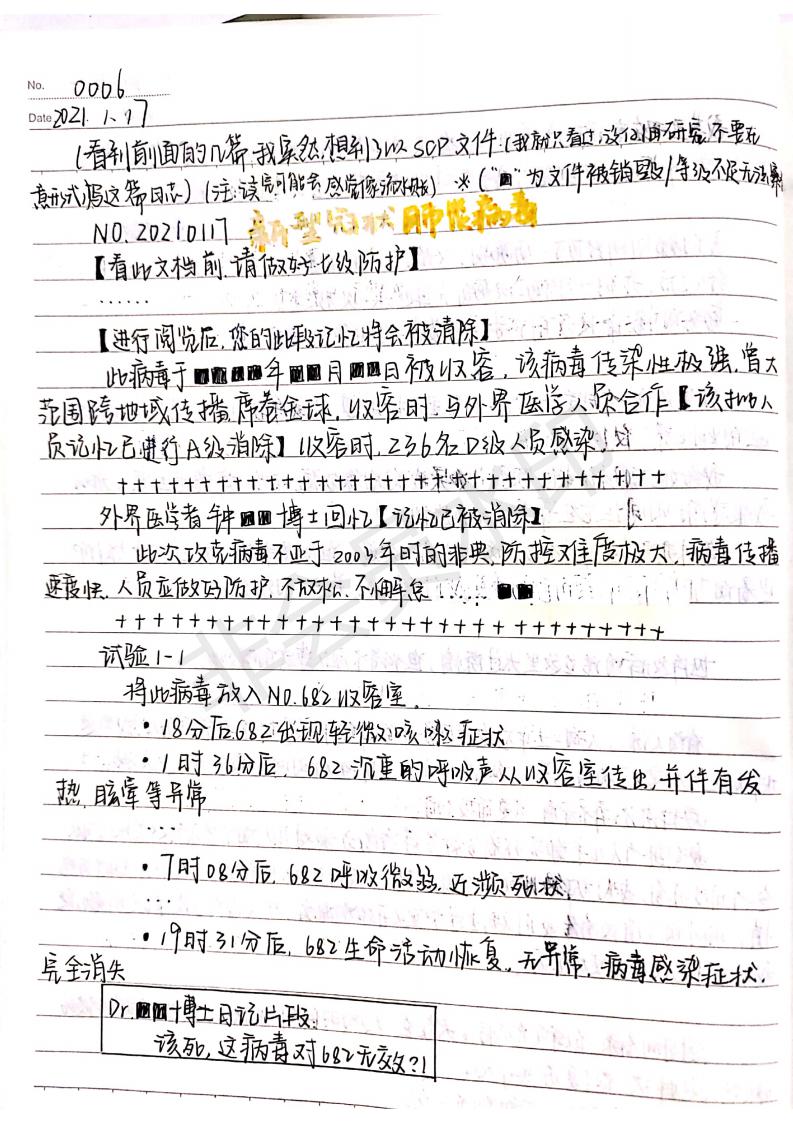 No. 0006
Date 2021.1.17
(看到前面的几篇,我突然想到了 SCP文件(我就只看过,没仔细研究,不要在
意形式)写这篇日志)(注:读完可能会感觉像流水账) *("■"为文件被销毁/等级不足无法
NO.20210117 新型冠状肺炎病毒
【看此文档前,请做好七级防护】
……
【进行阅览后,您的此段记忆将会被清除】
此病毒于■■■■年■■月■■日被收容,该病毒传染性极强,曾大
范围跨地域传播,席卷全球,收容时,与外界医学人员合作【该批人
员记忆已进行A级消除】收容时,236名D级人员感染!
+++++++++++++++++++++++++++++
外界医学者钟■■博士回忆【记忆已被消除】
此次攻克病毒不亚于2003年时的非典,防控难度极大,病毒传播
速度快,人员应做好防护,不放松,不懈怠……■■
+++++++++++++++++++++++++++++
试验1-1
将此病毒放入NO.682收容室.
·18分后682出现轻微咳嗽症状
·1时36分后,682沉重的呼吸声从收容室传出,并伴有发
热,眩晕等异常
…
·7时08分后,682呼吸微弱,近濒死状,
…
·19时31分后,682生命活动恢复,无异常,病毒感染症状,
完全消失
Dr.■■博士日记片段:
该死,这病毒对682无效?!
非会员水印